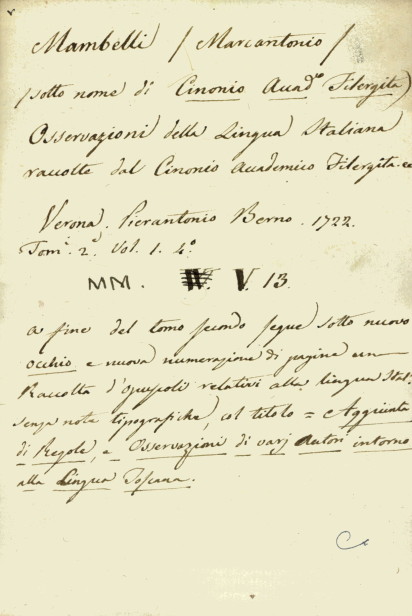 Mambelli / Marcantonio /
(sotto nome di Cinonio Acad.co Filergita)
Osservazioni della Lingua Italiana
raccolte dal Cinonio Academico Filergita. ec
Verona. Pierantonio Berno. 1722.
Tom.i 2.i Vol. 1. 4.o
MM. V. 13.
a fine del tomo secondo segue sotto nuovo
occhio e nuova numerazione di pagine una
Raccolta d'opuscoli relativi alla lingua Ital.a
senza note tipografiche, col titolo = Aggiunta
di Regole, e Osservazioni di varj Autori intorno
alla Lingua Toscana.